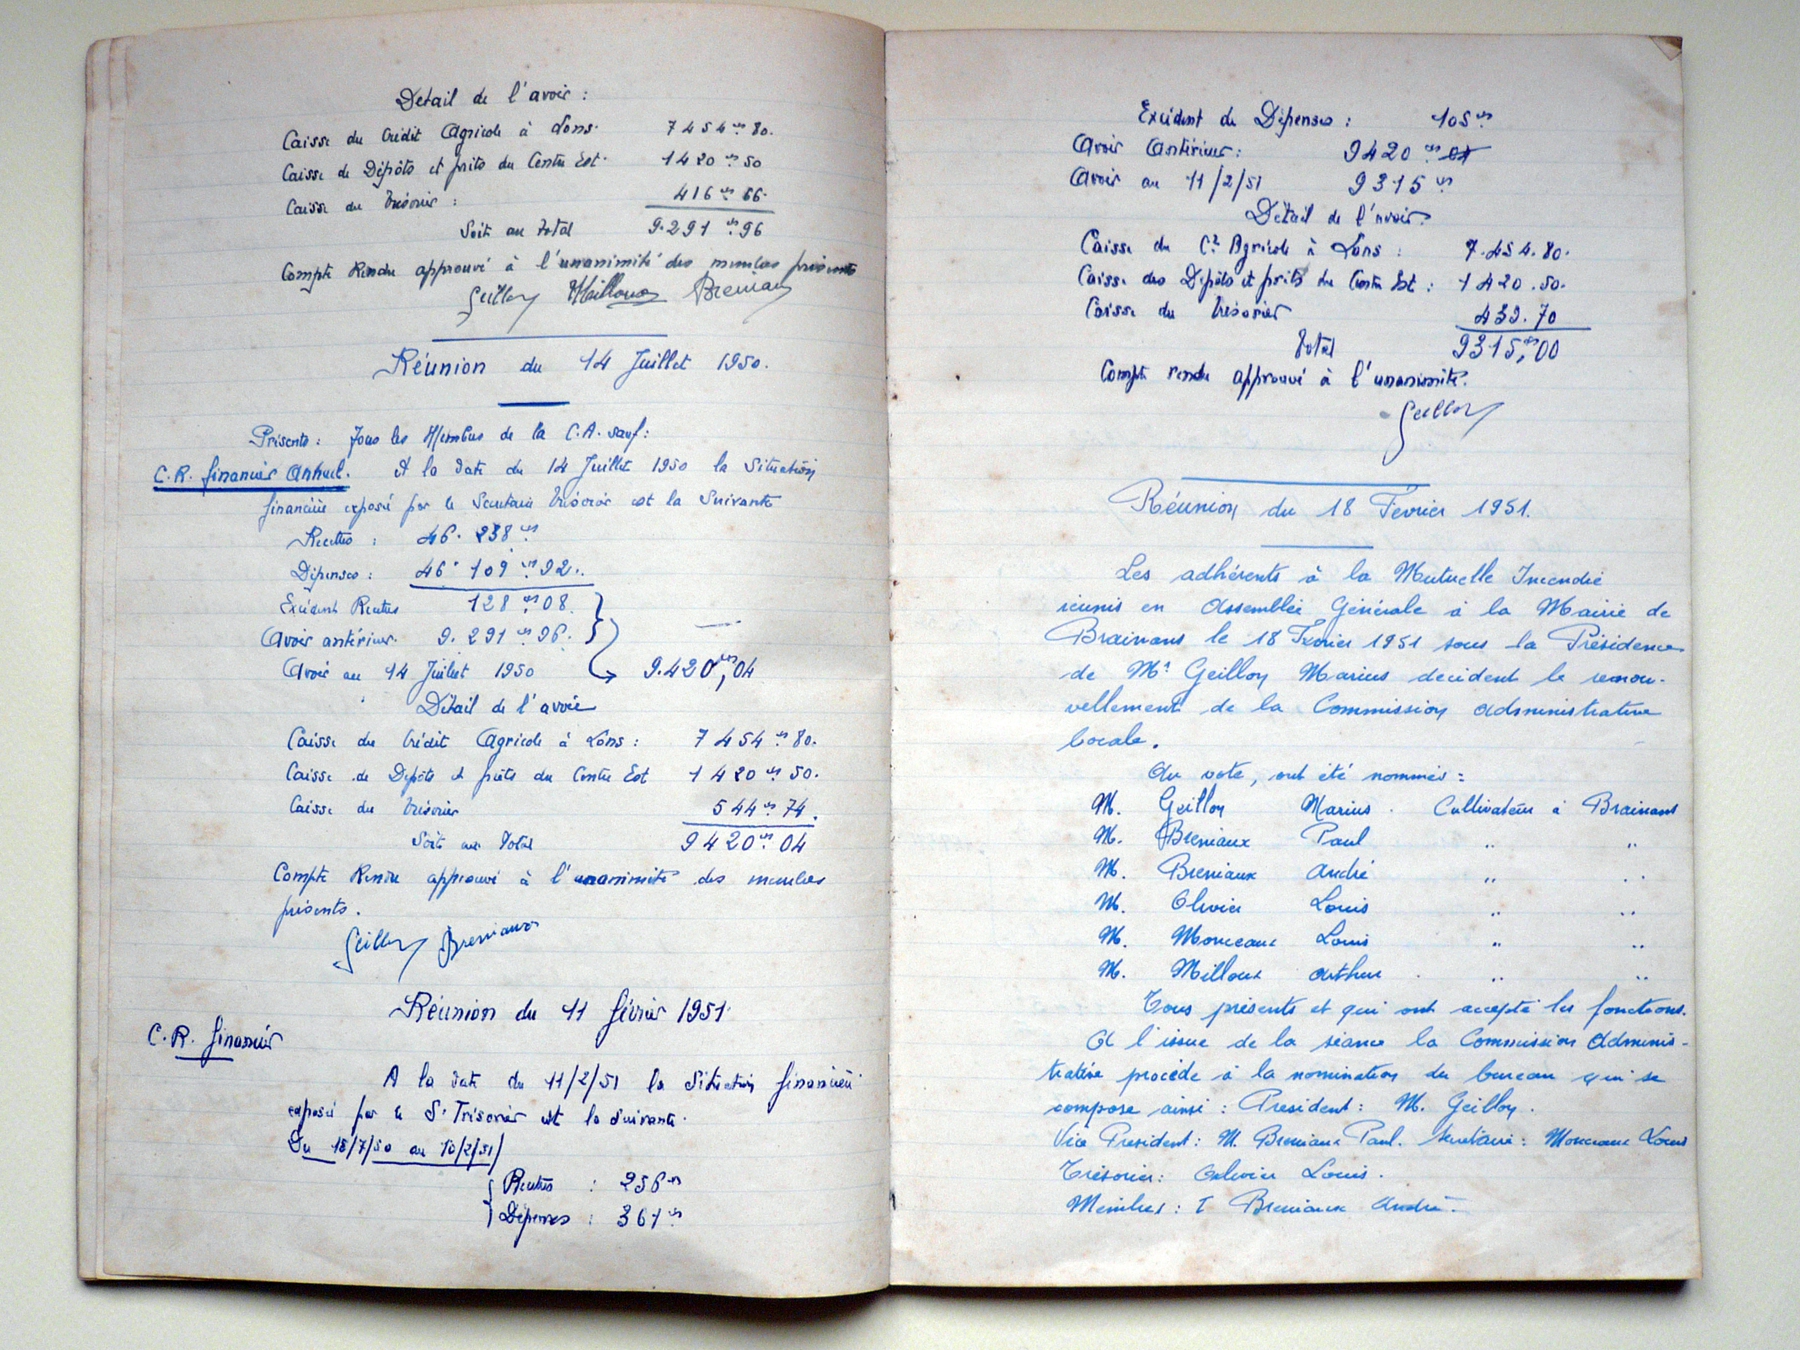 Détail de l'avoir :
Caisse du Crédit Agricole à Lons. 7454 frs 80.
Caisse de Dépôts et prêts du Centre Est. 1420 frs 50
Caisse du Trésorier : 416 frs 66.
Soit au total 9.291 frs 96
Compte Rendu approuvé à l'unanimité des membres présents
Geillon Milloux Breniaux
Réunion du 14 Juillet 1950.
Présents : Tous les Membres de la C.A. sauf :
C.R. financier Annuel. A la date du 14 Juillet 1950 la Situation
financière exposé par le Secrétaire Trésorier est la Suivante
Recettes : 46.238 frs
Dépenses : 46.109 frs 92.
Excédent Recettes 128 frs 08.
Avoir antérieur. 9.291 frs 96.
Avoir au 14 Juillet 1950 9.420 frs, 04
Détail de l'avoir
Caisse du Crédit Agricole à Lons : 7454 frs 80.
Caisse de Dépôts et prêts du Centre Est 1420 frs 50.
Caisse du Trésorier 544 frs 74.
Soit au Total 9420 frs 04
Compte Rendu approuvé à l'unanimité des membres
présents.
Geillon Breniaux
Réunion du 11 février 1951.
C.R. financier
A la date du 11/2/51 la Situation financière
exposée par le S. Trésorier est la suivante.
Du 18/7/50 au 10/2/51/
Recettes : 256 frs
Dépenses : 361 frs
Excédent de Dépenses : 105 frs
Avoir Antérieur : 9420 frs 04
Avoir au 11/2/51 9315 frs
Détail de l'avoir
Caisse du Ct Agricole à Lons : 7.454.80.
Caisse des Dépôts et prêts du Centre Est : 1420.50.
Caisse du Trésorier 439.70
Total 9315, frs 00
Compte rendu approuvé à l'unanimité.
Geillon
Réunion du 18 Février 1951.
Les adhérents à la Mutuelle Incendie
réunis en Assemblée Générale à la Mairie de
Brainans le 18 Février 1951 sous la Présidence
de Mr Geillon Marius décident le renou-
vellement de la Commission administrative
locale.
Au vote, ont été nommés :
M. Geillon Marius. Cultivateur à Brainans
M. Breniaux Paul " "
M. Breniaux André " "
M. Olivier Louis " "
M. Monceaux Louis " "
M. Milloux Arthur " "
Tous présents et qui ont accepté les fonctions.
A l'issue de la séance la Commission Adminis-
trative procède à la nomination du bureau qui se
compose ainsi : Président : M. Geillon.
Vice Président : M. Breniaux Paul. Secrétaire : Monceaux Louis
Trésorier : Olivier Louis.
Membres : Breniaux André.